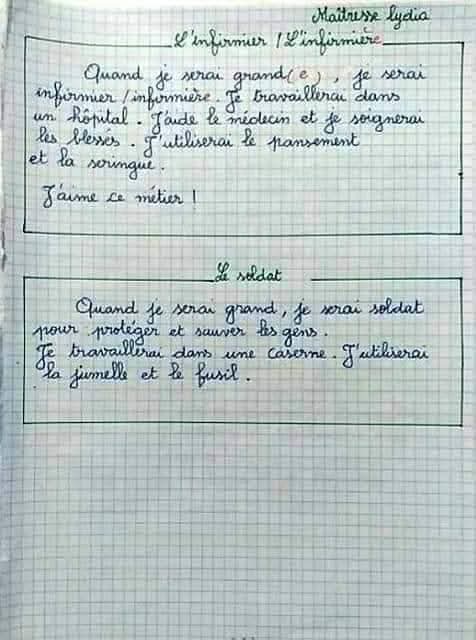 Maîtresse Lydia
L'infirmier / L'infirmière
Quand je serai grand(e), je serai
infirmier / infirmière. Je travaillerai dans
un hôpital. J'aide le médecin et je soignerai
les blessés. J'utiliserai le pansement
et la seringue.
J'aime ce métier !
Le soldat
Quand je serai grand, je serai soldat
pour protéger et sauver les gens.
Je travaillerai dans une caserne. J'utiliserai
la jumelle et le fusil.